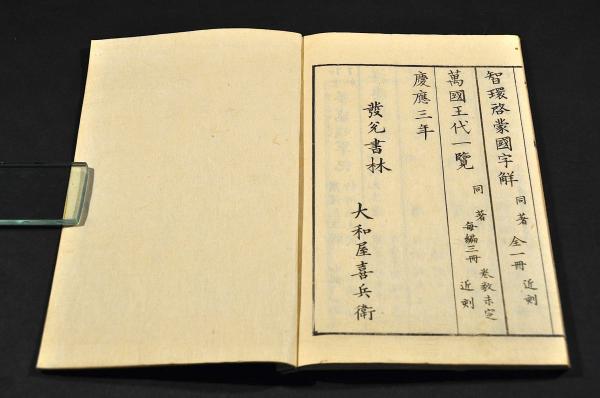 智環啓蒙國字解 同著 全一冊 近刻
萬國王代一覽 同著 每編三冊 卷数未定 近刻
慶應三年
發兌書林 大和屋喜兵衛